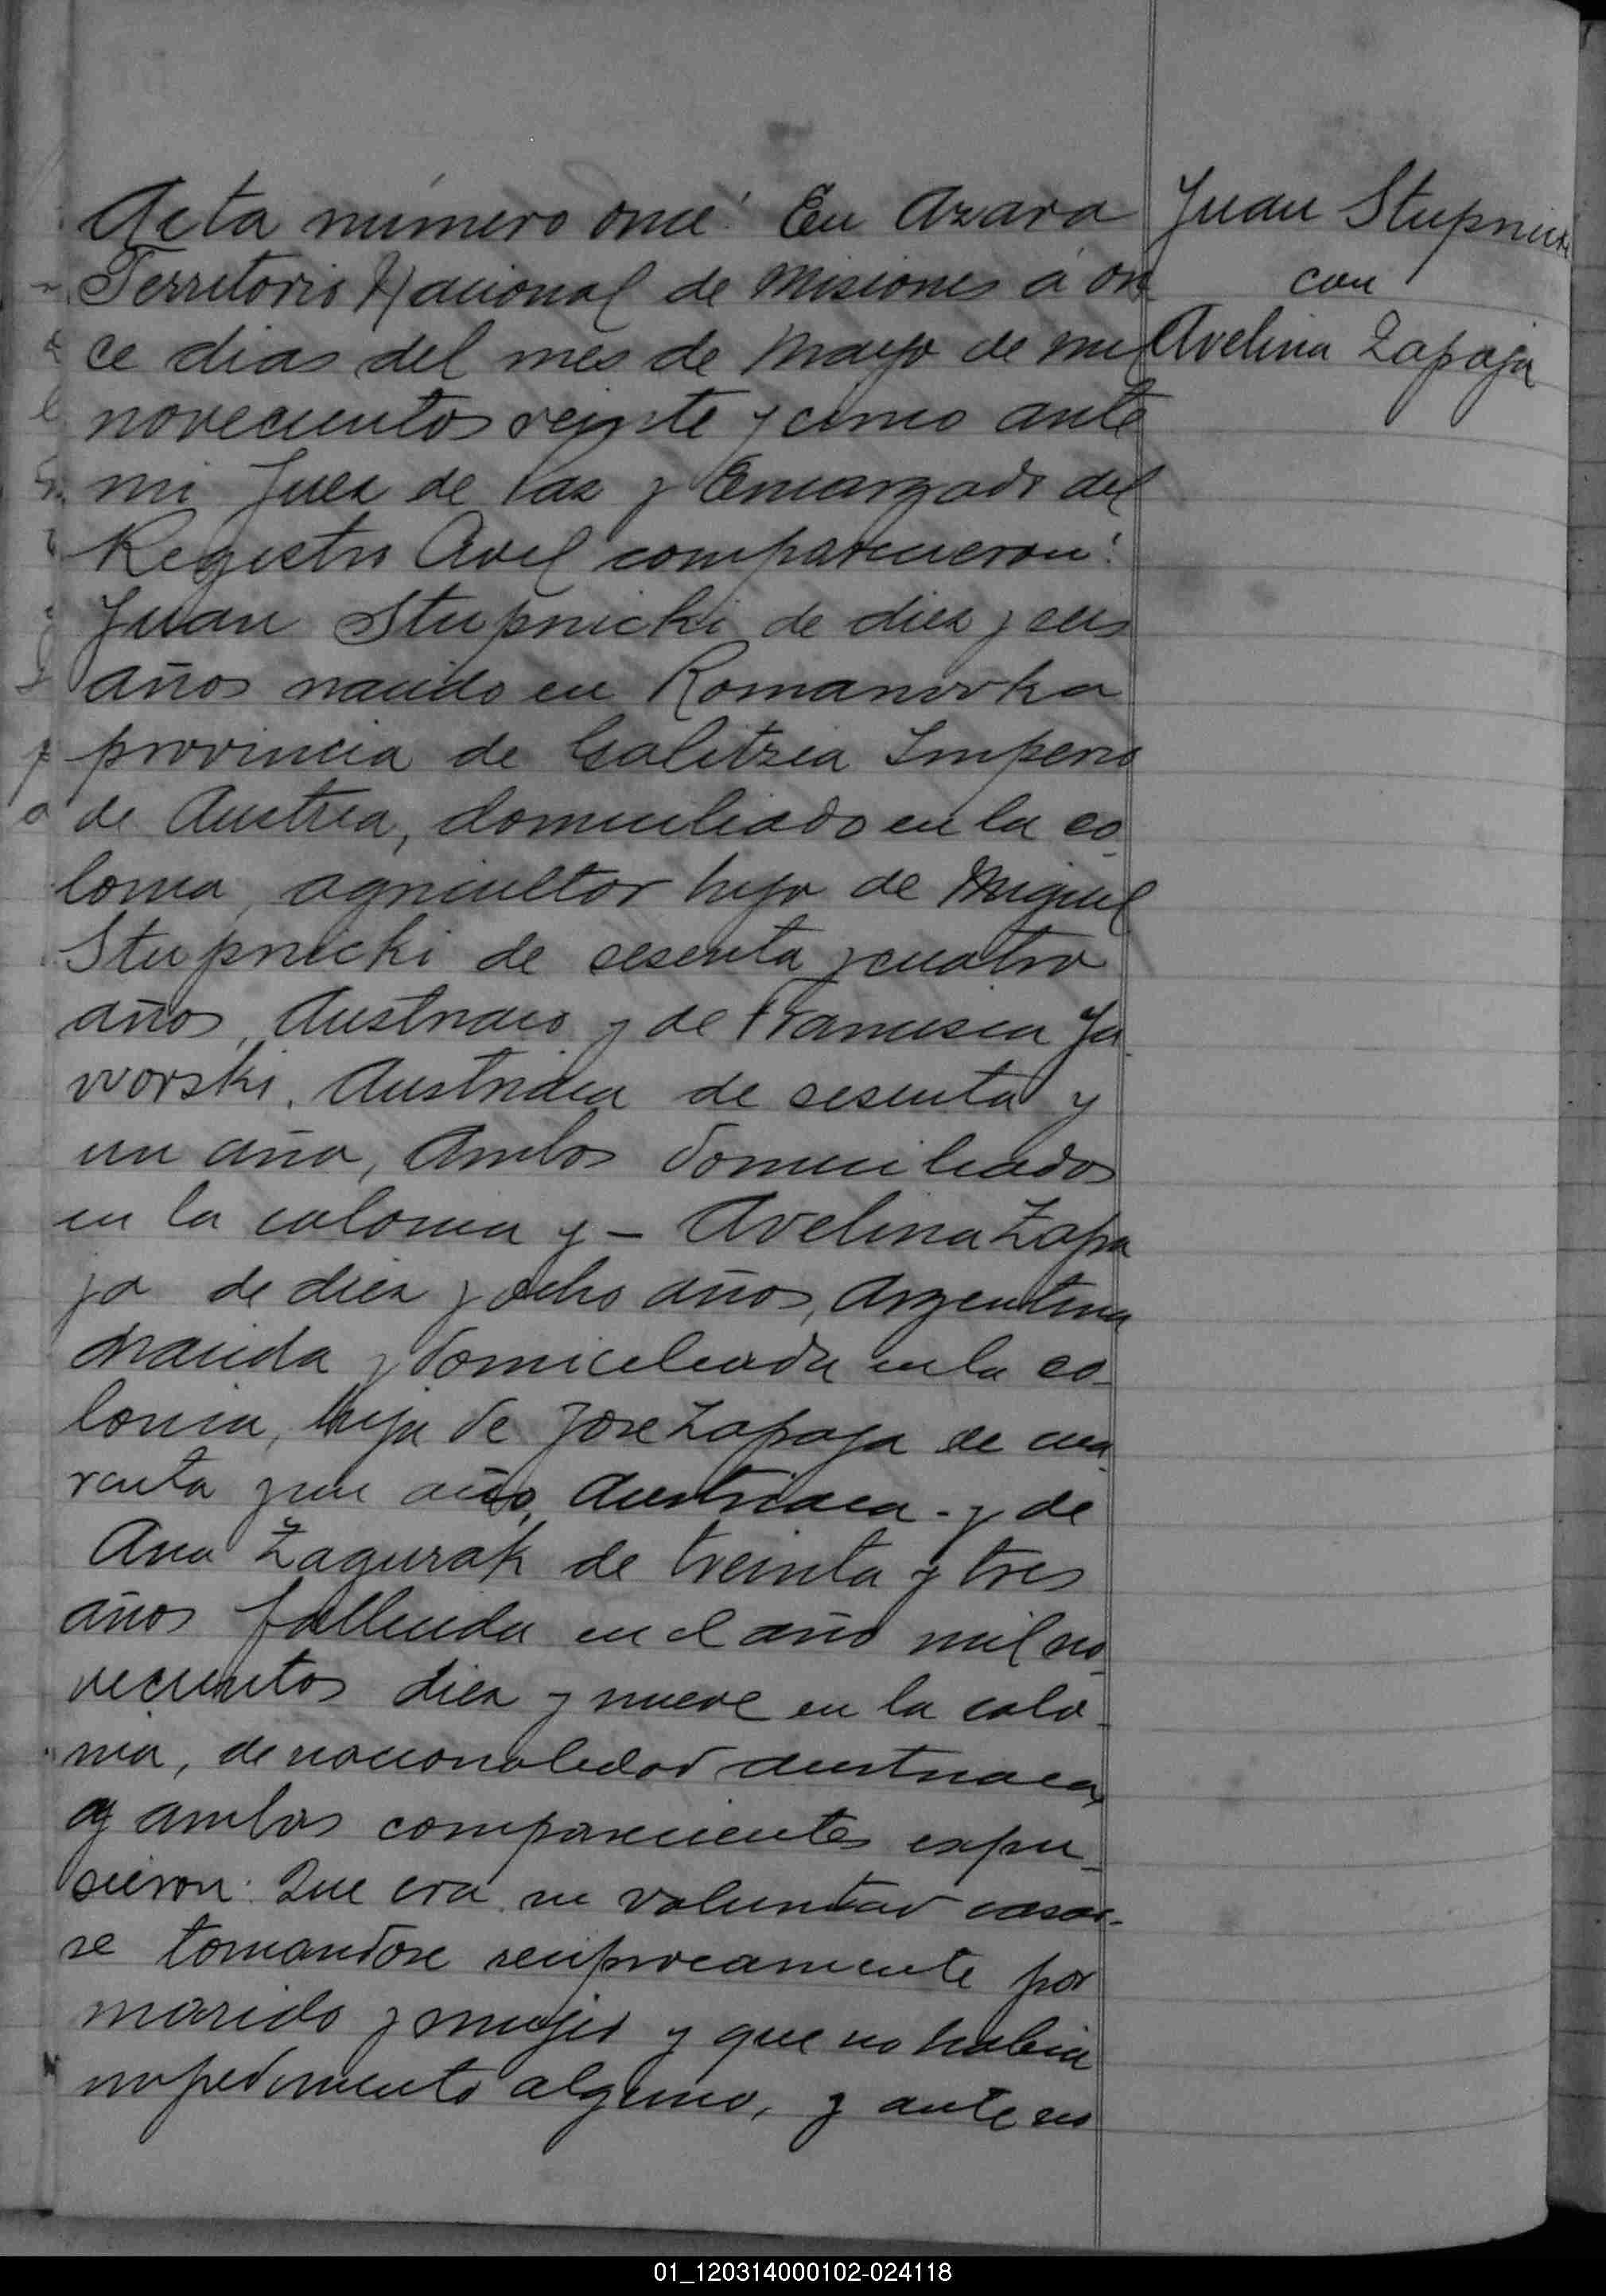 Acta número once: En Azara
Territorio Nacional de Misiones á on
ce dias del mes de Mayo de mil
novecientos veinte y cinco ante
mi Juez de Paz y Encargado del
Registro Civil comparecieron:
Juan Stupnicki de diez y seis
años nacido en Romanovka
provincia de Galitzia Imperio
de Austria, domiciliado en la co
lonia, agricultor hijo de Miguel
Stupnicki de sesenta y cuatro
años, Austriaco y de Francisca Ja
worski, Austriaca de sesenta y
un año, Ambos domiciliados
en la colonia y - Avelina Zapa
ja de diez y ocho años, Argentina
nacida y domiciliada en la co-
lonia, hija de Jose Zapaja de cua
renta y un año, Austriaca - y de
Ana Zagurak de treinta y tres
años fallecida en el año mil no
vecientos diez y nueve en la colo-
nia, de nacionalidad austriaca,
y ambos comparecientes expu-
sieron: Que era su voluntad casar-
se tomandose reciprocamente por
marido y mujer y que no habia
impedimento alguno, y ante su
Juan Stupnicki
con
Avelina Zapaja
01_120314000102-024118